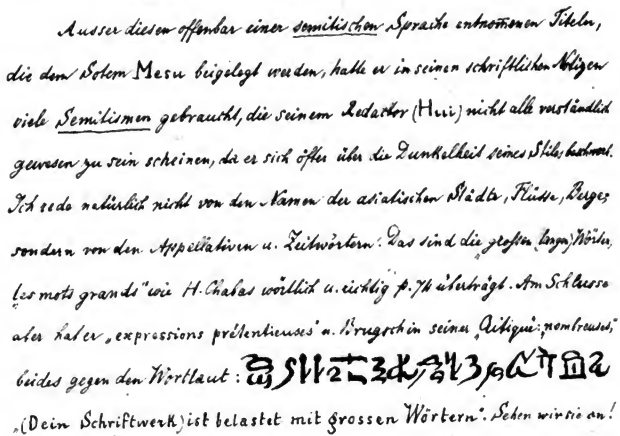 Ausser diesen offenbar einer semitischen Sprache entnom̄enen Titeln,
die dem Sotem Mesu beigelegt werden, hatte er in seinen schriftlichen Notizen
viele Semitismen gebraucht, die seinem Redactor (Hui) nicht alle verständlich
gewesen zu sein scheinen, da er sich öfter über die Dunkelheit seines Stiles beschwert.
Ich rede natürlich nicht von den Namen der asiatischen Städte, Flüsse, Berge,
sondern von den Appellativen u. Zeitwörtern. Das sind die „großen (langen) Wörter,
„les mots grands“ wie H. Chabas wörtlich u. richtig p. 74 überträgt. Am Schlusse
aber hat er „expressions prétentieuses“ u. Brugsch in seiner „Critique“: „nombreuses“,
beides gegen den Wortlaut :
„(Dein Schriftwerk) ist belastet mit grossen Wörtern“. Sehen wir sie an!